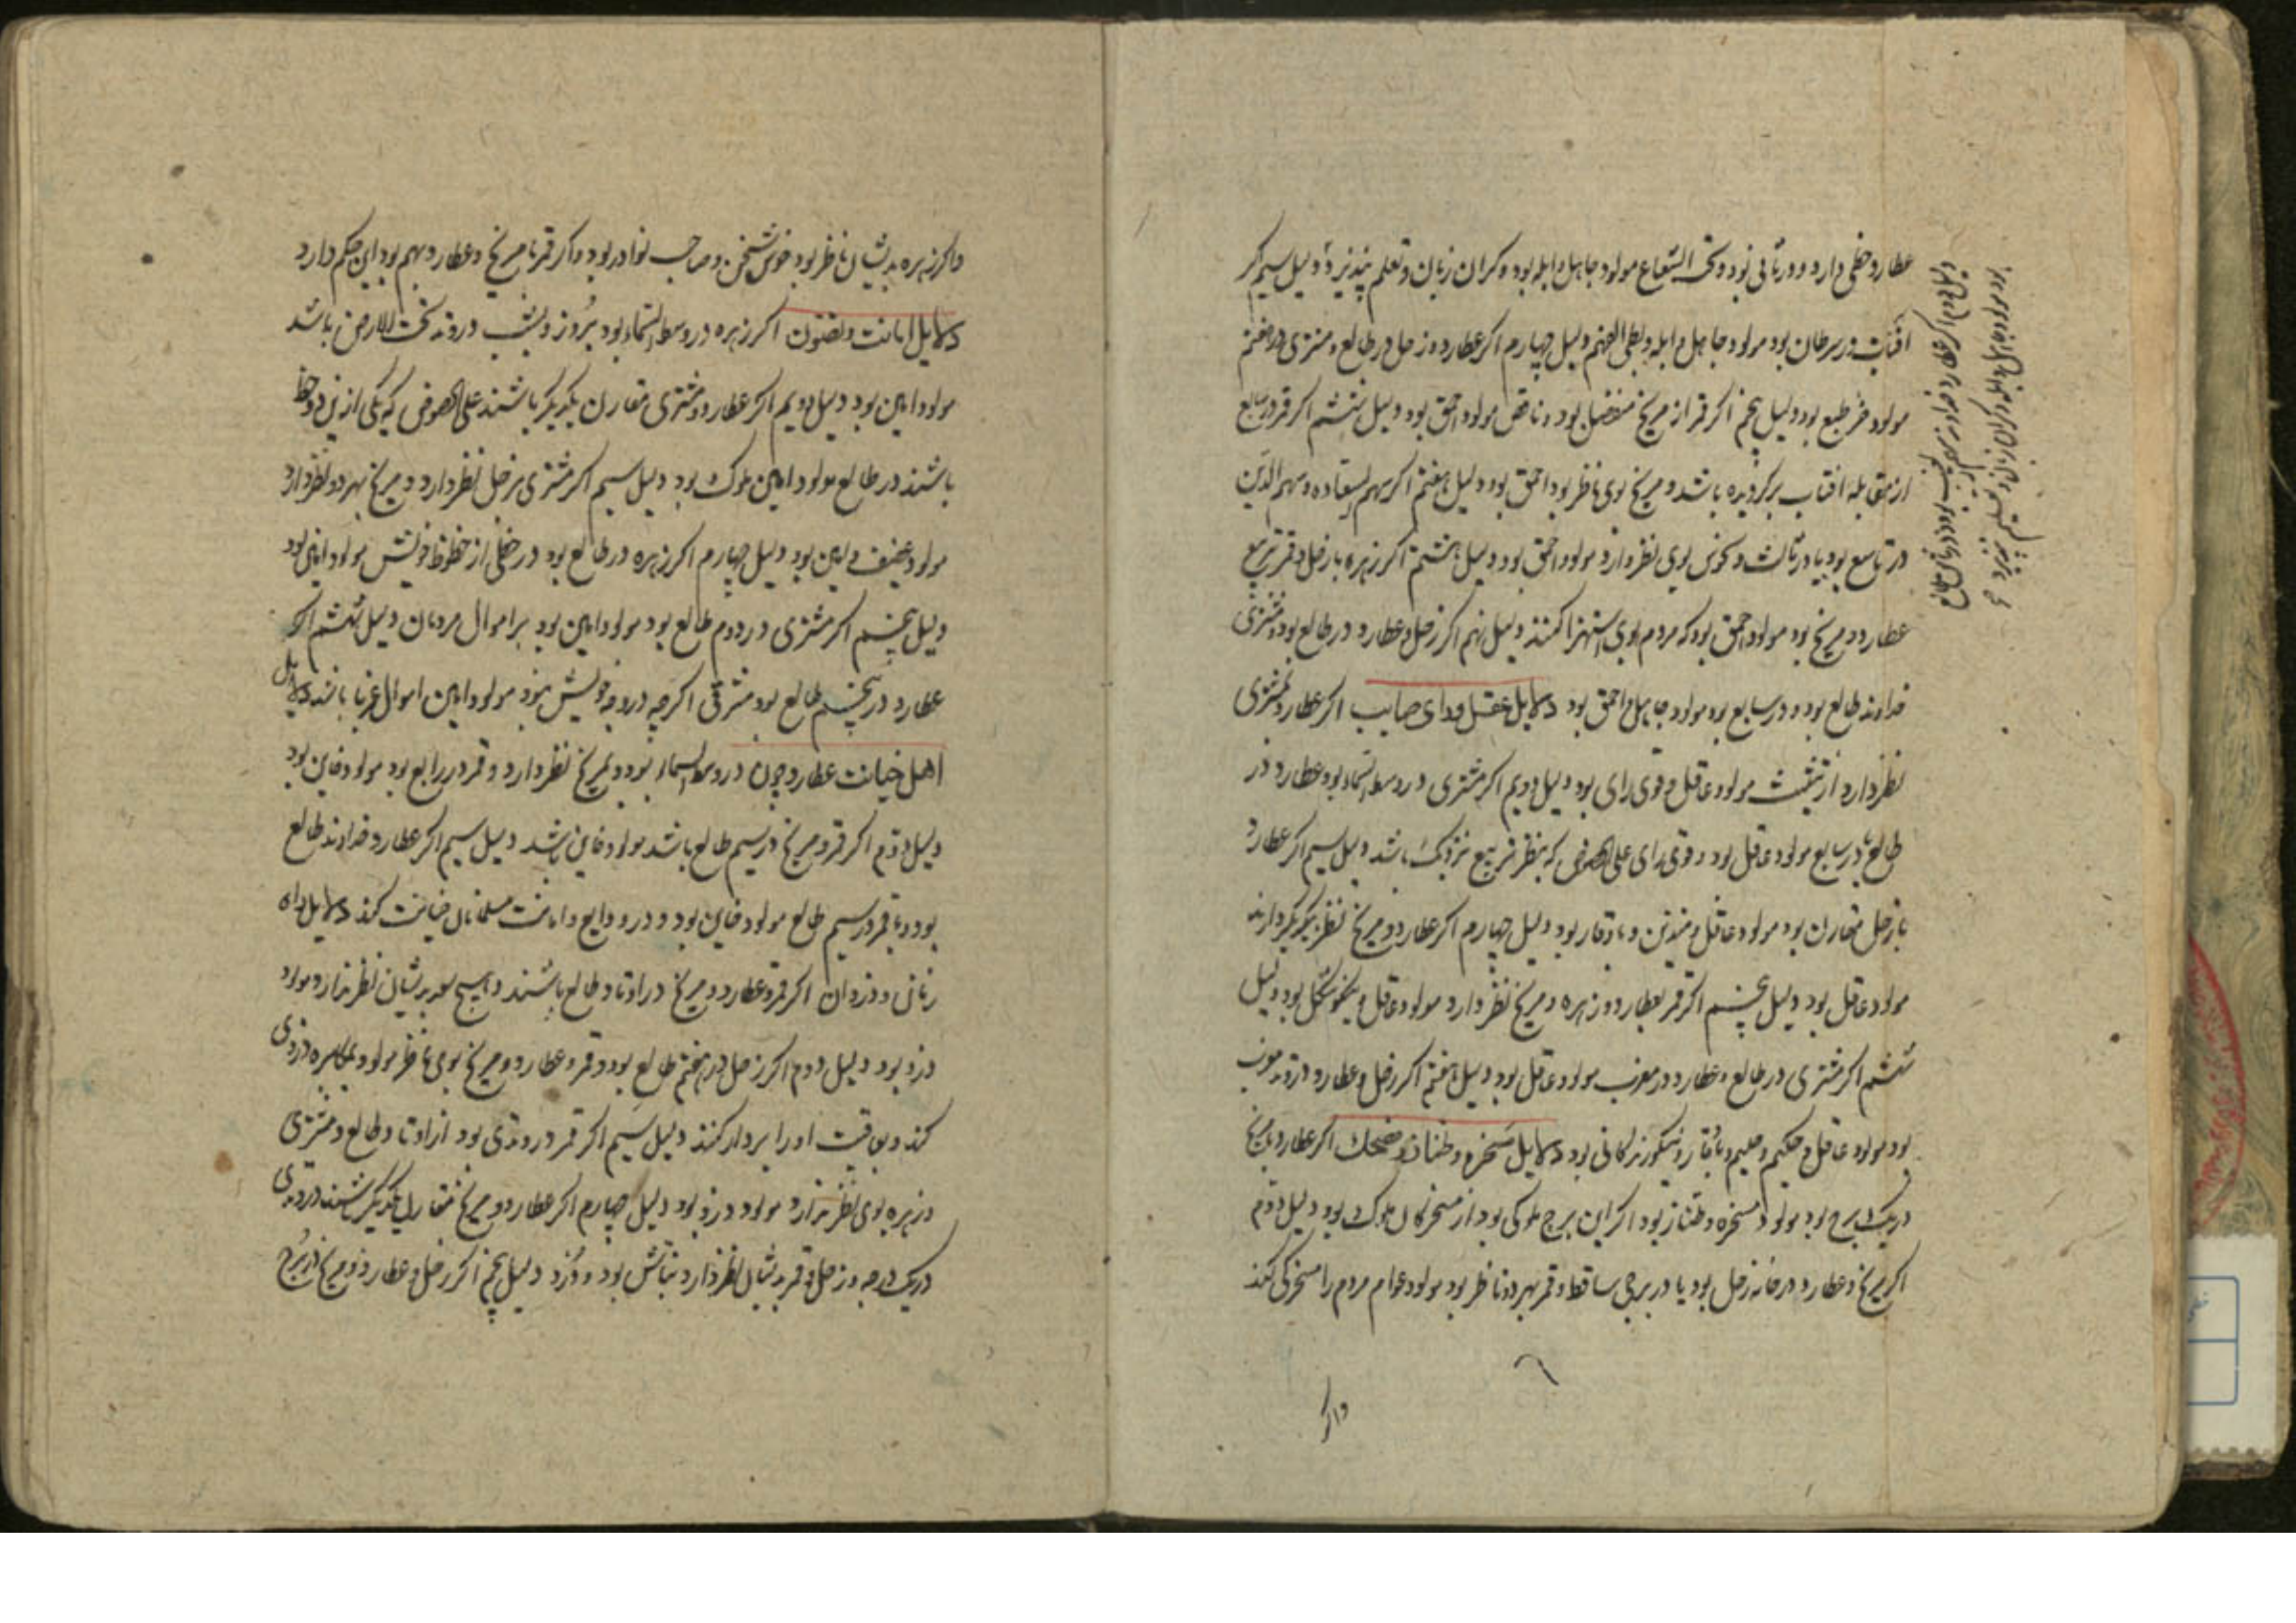 عطارد حظی دارد و در ثانی بود و تحت الشعاع مولود جاهل و ابله بود و کران زبان و تعلم نپذیرد دلیل سیم اکر
افتاب در سرطان بود مولود جاهل و ابله و بطی الفهم دلیل چهارم اکر عطارد و زحل در طالع و مشتری در هفتم
مولود خر طبع بود دلیل پنجم اکر قمر از مریخ منفصل بود و ناقص مولود احمق بود دلیل ششم اکر قمر در سابع
از مقابله افتاب برکردیده باشد و مریخ بوی ناظر بود احمق بود دلیل هفتم اکر سهم السعاده و سهم الدین
در تاسع بود یا در ثالث و نحوس بوی نظر دارد مولود احمق بود دلیل هشتم اکر زهره با زحل و قمر بتربیع
عطارد و مریخ بود مولود احمق بود که مردم بوی استهزا کنند دلیل نهم اکر زحل و عطارد در طالع بود و مشتری
خداوند طالع بود و در سابع بود مولود جاهل و احمق بود دلایل عقل و رای صایب اکر عطارد بمشتری
نظر دارد از تثلیث مولود عاقل و قوی رای بود دلیل دویم اکر مشتری در وسط السماء بود و عطارد در
طالع یا در سابع مولود عاقل بود و قوی رای علی الخصوص که بنظر تربیع نزدیک باشد دلیل سیم اکر عطارد
با زحل مقارن بود مولود عاقل و متدین و با وقار بود دلیل چهارم اکر عطارد و مریخ نظر بیکدیکر دارند
مولود عاقل بود دلیل پنجم اکر قمر بعطارد و زهره و مریخ نظر دارد مولود عاقل و نیکو شکل بود دلیل
ششم اکر مشتری در طالع و عطارد در مغرب مولود عاقل بود دلیل هفتم اکر زحل و عطارد در وتد مغرب
بود مولود عاقل و حکیم و حلیم و با وقار و نیکو زندکانی بود دلایل مسخره و طناز و ضحک اکر عطارد با مریخ
در یک برج بود مولود مسخره و طناز بود اکر این برج ملوکی بود از مسخرکان ملوک بود دلیل دوم
اکر مریخ و عطارد در خانه زحل بود یا در برجی ساقط و قمر بهر دو ناظر بود مولود عوام مردم را مسخرکی کند
واکر
واکر زهره بدیشان ناظر بود خوش سخن و صاحب نوادر بود و اکر قمر با مریخ و عطارد بهم بود این حکم دارد
دلایل امانت و تصون اکر زهره در وسط السماء بود بروز و بشب در وتد تحت الارض باشد
مولود امین بود دلیل دویم اکر عطارد و مشتری مقارن یکدیکر باشند علی الخصوص که یکی ازین دو حظ
باشند در طالع مولود امین ملوک بود دلیل سیم اکر مشتری بزحل نظر دارد و مریخ بهر دو نظر دارد
مولود عفیف و امین بود دلیل چهارم اکر زهره در طالع بود در حظی از حظوظ خویش مولود امین بود
دلیل پنجم اکر مشتری در دوم طالع بود مولود امین بود بر اموال مردمان دلیل ششم اکر
عطارد در پنجم طالع بود مشرقی اکرچه در وجه خویش نبود مولود امین اموال غربا باشد دلایل
اهل خیانت عطارد چون در وسط السماء بود و بمریخ نظر دارد و قمر در رابع بود مولود خاین بود
دلیل دوم اکر قمر و مریخ در سیم طالع باشد مولود خاین باشد دلیل سیم اکر عطارد خداوند طالع
بود و با قمر در سیم طالع مولود خاین بود و در ودایع و امانت مسلمانان خیانت کند دلایل راه
زنان و دزدان اکر قمر و عطارد و مریخ در اوتاد طالع باشند و هیچ سعد بدیشان نظر ندارد مولود
دزد بود دلیل دوم اکر زحل در هفتم طالع بود و قمر و عطارد و مریخ بوی ناظر مولود بمکابره دزدی
کند و بعاقبت او را بردار کنند دلیل سیم اکر قمر در وتدی بود از اوتاد طالع و مشتری
و زهره بوی نظر ندارد مولود دزد بود دلیل چهارم اکر عطارد و مریخ مقارن یکدیکر باشند در وتدی
در یک درجه و زحل و قمر بدیشان نظر دارد نباش بود و دزد دلیل پنجم اکر زحل و عطارد و مریخ در برج